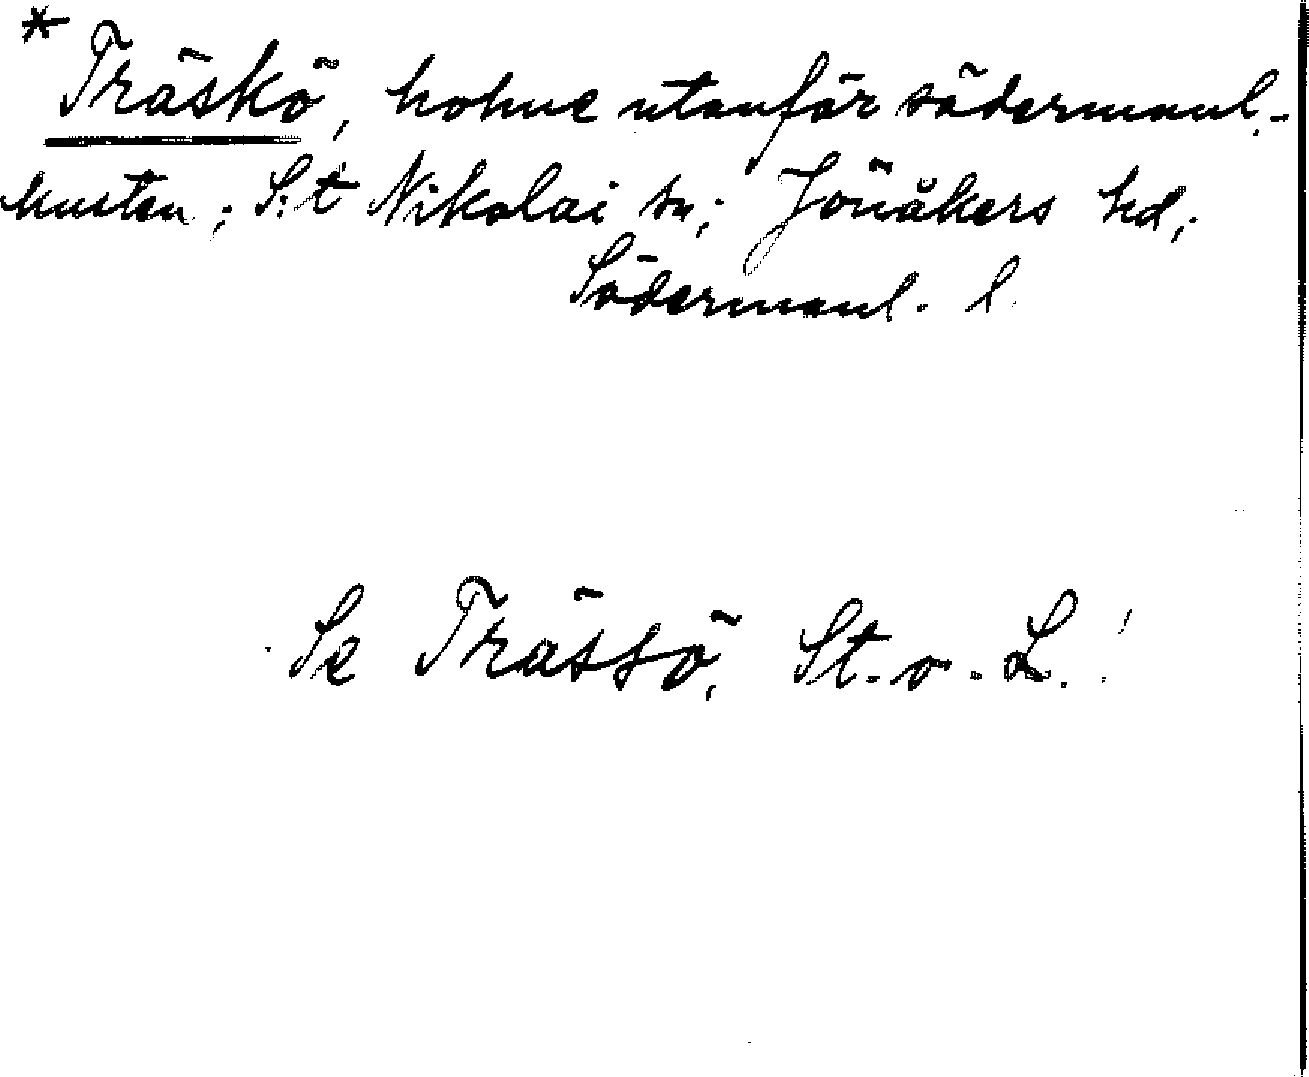 * Träskö, holme utanför södermanl.-
kusten; S:t Nikolai sn; Jönåkers hd;
Södermanl. l.
Se Trässö, St. o. L.!